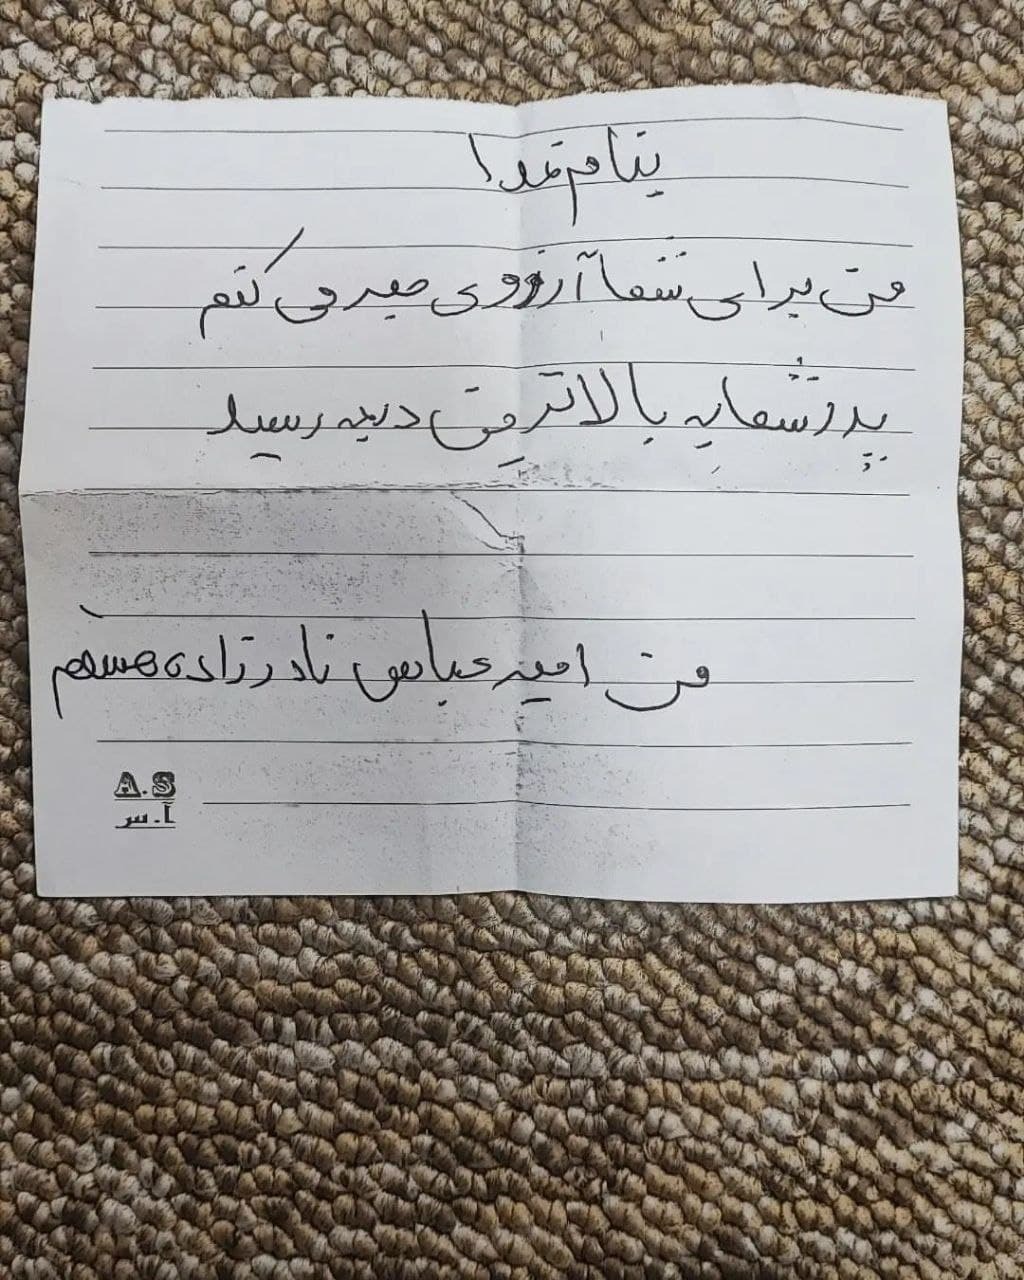 بنام خدا
من برای شما آرزوی صبر می کنم
پدر شما به بالاترین درجه رسید
من امیر عباس نادرزاده هستم
A.S
آ.س